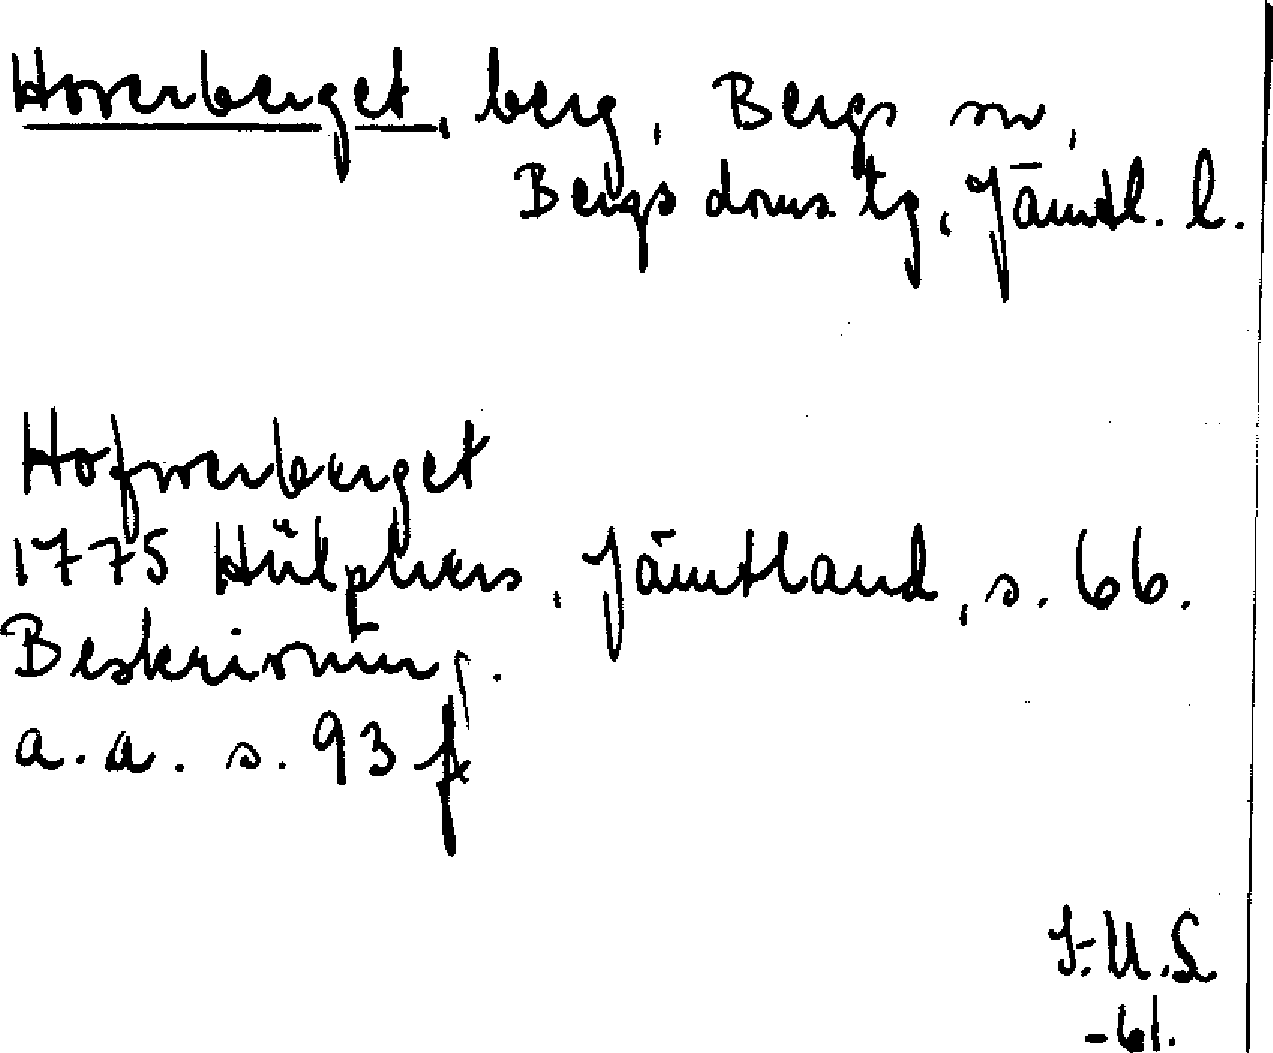 Hoverberget, berg, Bergs sn,
Bergs doms. tg, Jämtl. l.
Hofwerberget
1775 Hülphers, Jämtland, s. 66.
Beskrivning.
a. a. s. 93 f
J.U.S
-61.